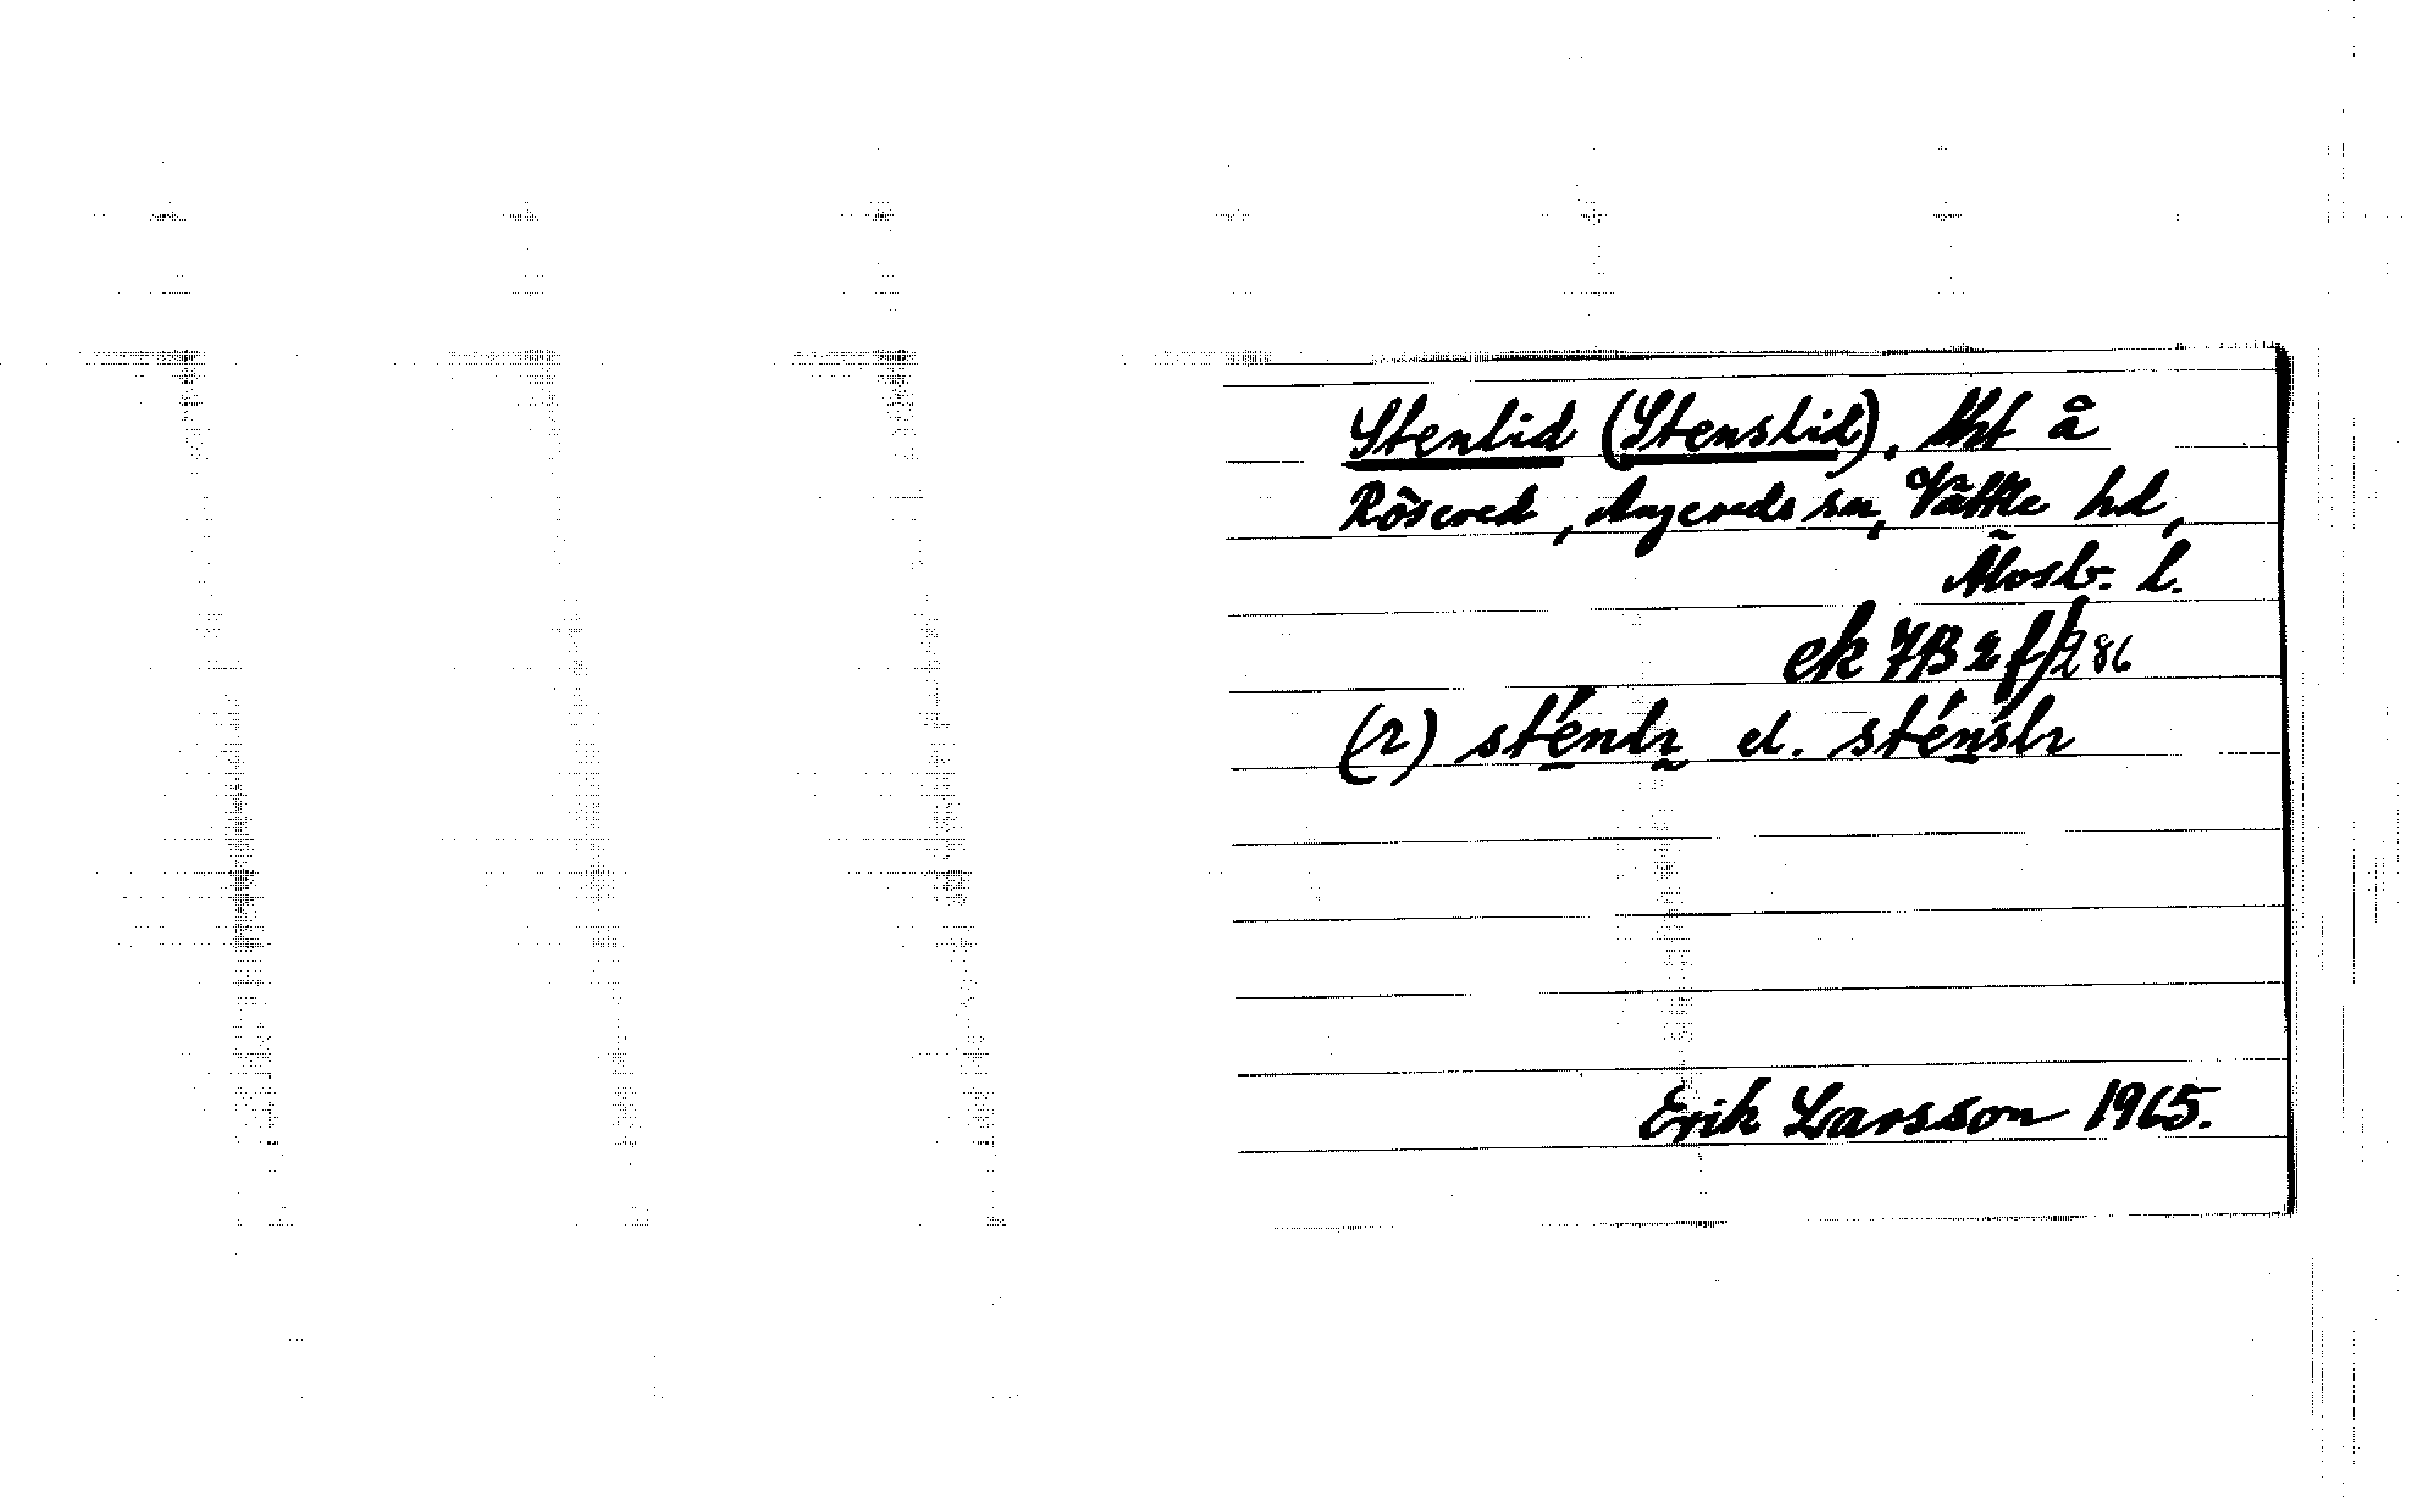 Stenlid (Stenslid), lht å
Rösered, Angereds sn, Vättle hd,
Älvsb. l.
ek 7B 2 f/g 86
(2) sténlı el. sténslı
Erik Larsson 1965.